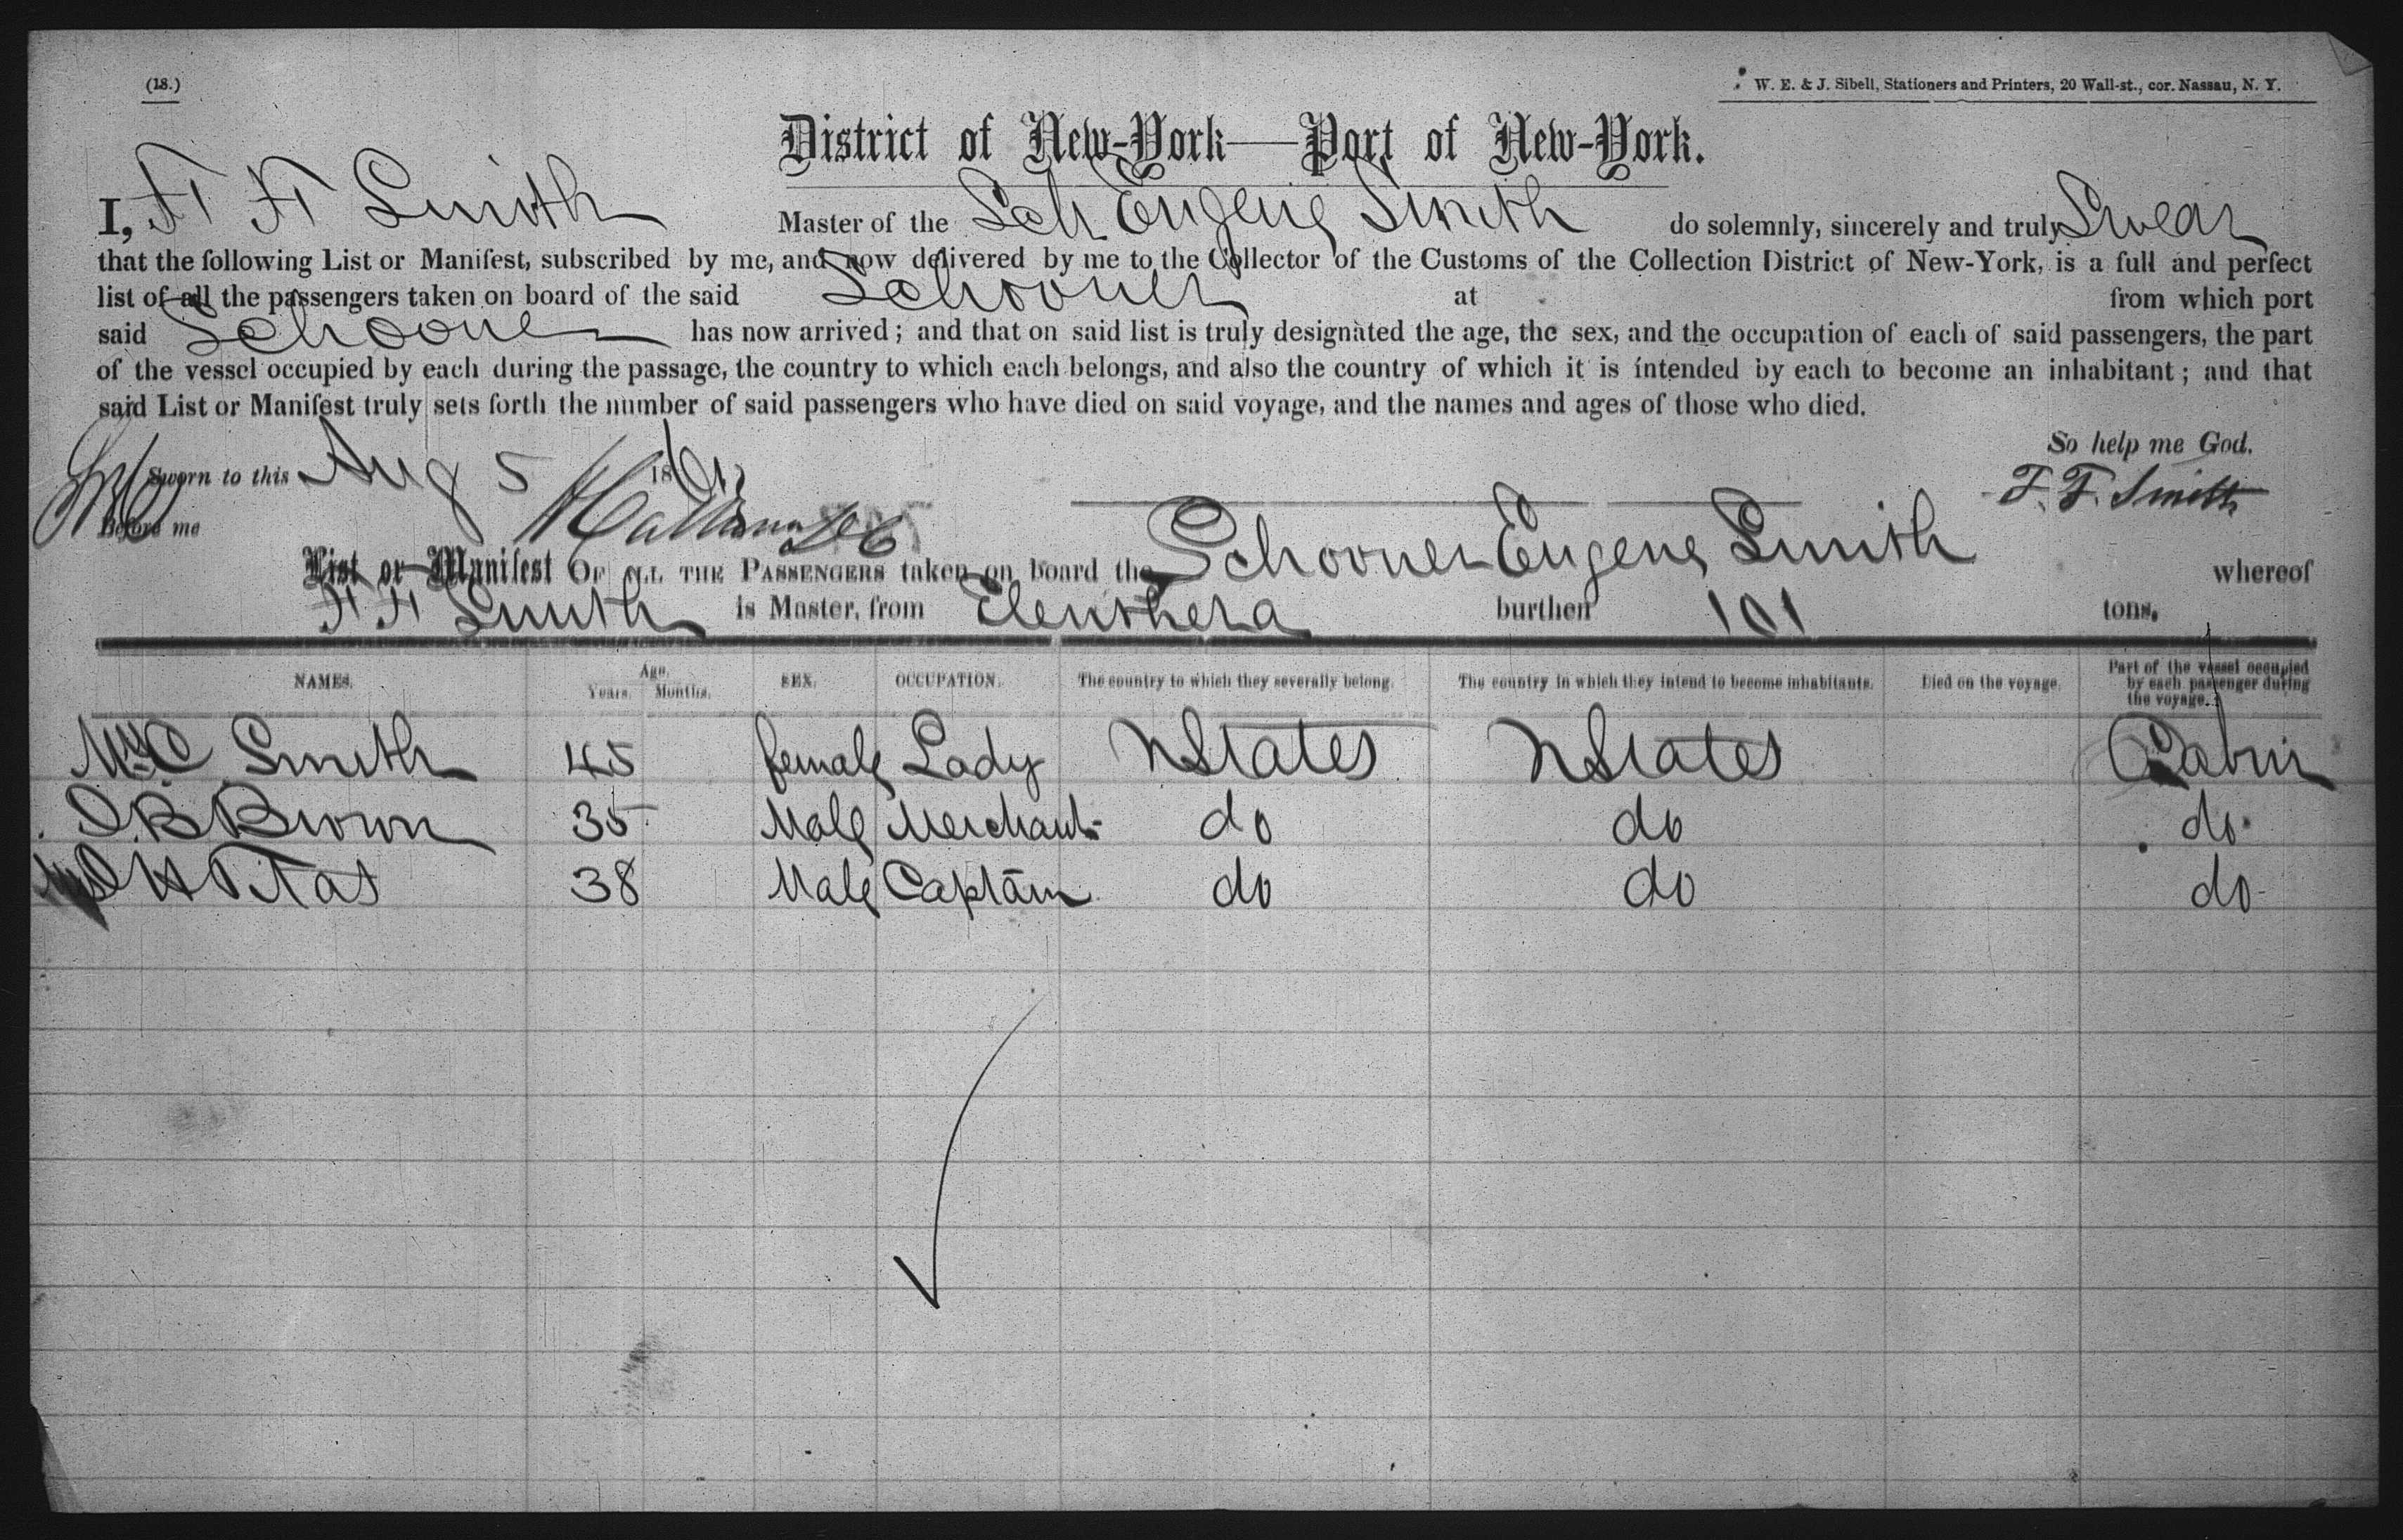 (18.)
W. E. & J. Sibell, Stationers and Printers, 20 Wall-st., cor. Nassau, N. Y.
District of New-York—Port of New-York.
I, F F Smith Master of the Sch Eugene Smith do solemnly, sincerely and truly Swear
that the following List or Manifest, subscribed by me, and now delivered by me to the Collector of the Customs of the Collection District of New-York, is a full and perfect
list of all the passengers taken on board of the said Schooner at from which port
said Schooner has now arrived; and that on said list is truly designated the age, the sex, and the occupation of each of said passengers, the part
of the vessel occupied by each during the passage, the country to which each belongs, and also the country of which it is intended by each to become an inhabitant; and that
said List or Manifest truly sets forth the number of said passengers who have died on said voyage, and the names and ages of those who died.
So help me God.
Sworn to this Aug 5 18
F. F. Smith
Before me
List or Manifest OF ALL THE PASSENGERS taken on board the Schooner Eugene Smith whereof
F F Smith is Master, from Eleuthera burthen 101 tons.
NAMES. Age. Years. Months. SEX. OCCUPATION. The country to which they severally belong. The country in which they intend to become inhabitants. Died on the voyage. Part of the vessel occupied by each passenger during the voyage.
Smith 45 female Lady UStates UStates Cabin
Brown 35 Male Merchant do do do
38 Male Captain do do do